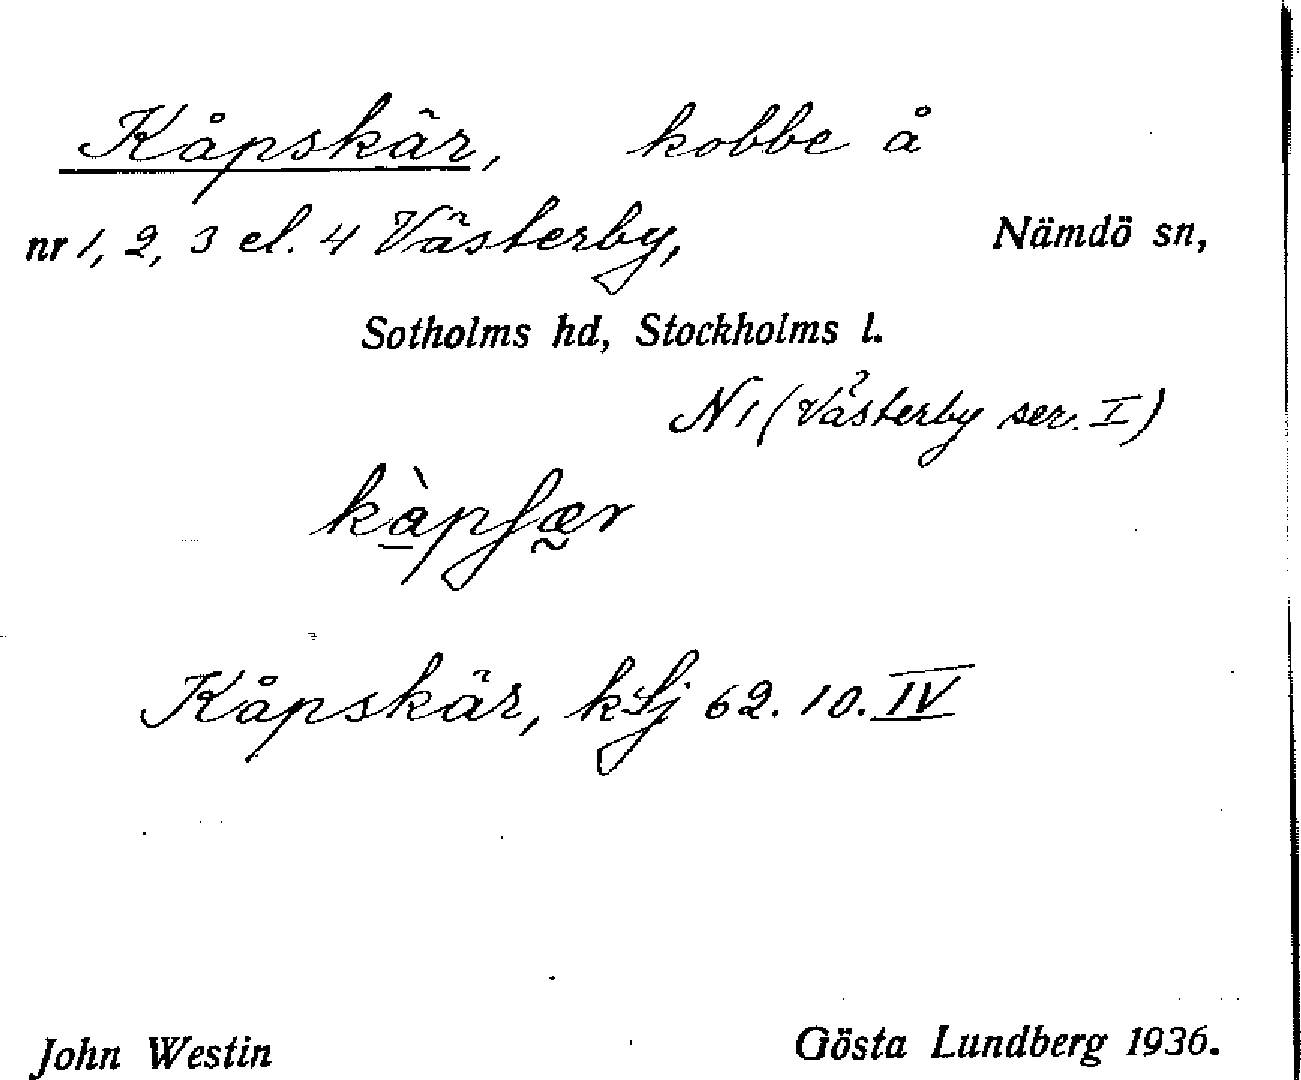 Kåpskär, kobbe å
nr 1, 2, 3 el. 4 Västerby, Nämdö sn,
Sotholms hd, Stockholms l.
N 1 (Västerby ser. I)
kàpʃær
Kåpskär, 62. 10. IV
John Westin Gösta Lundberg 1936.